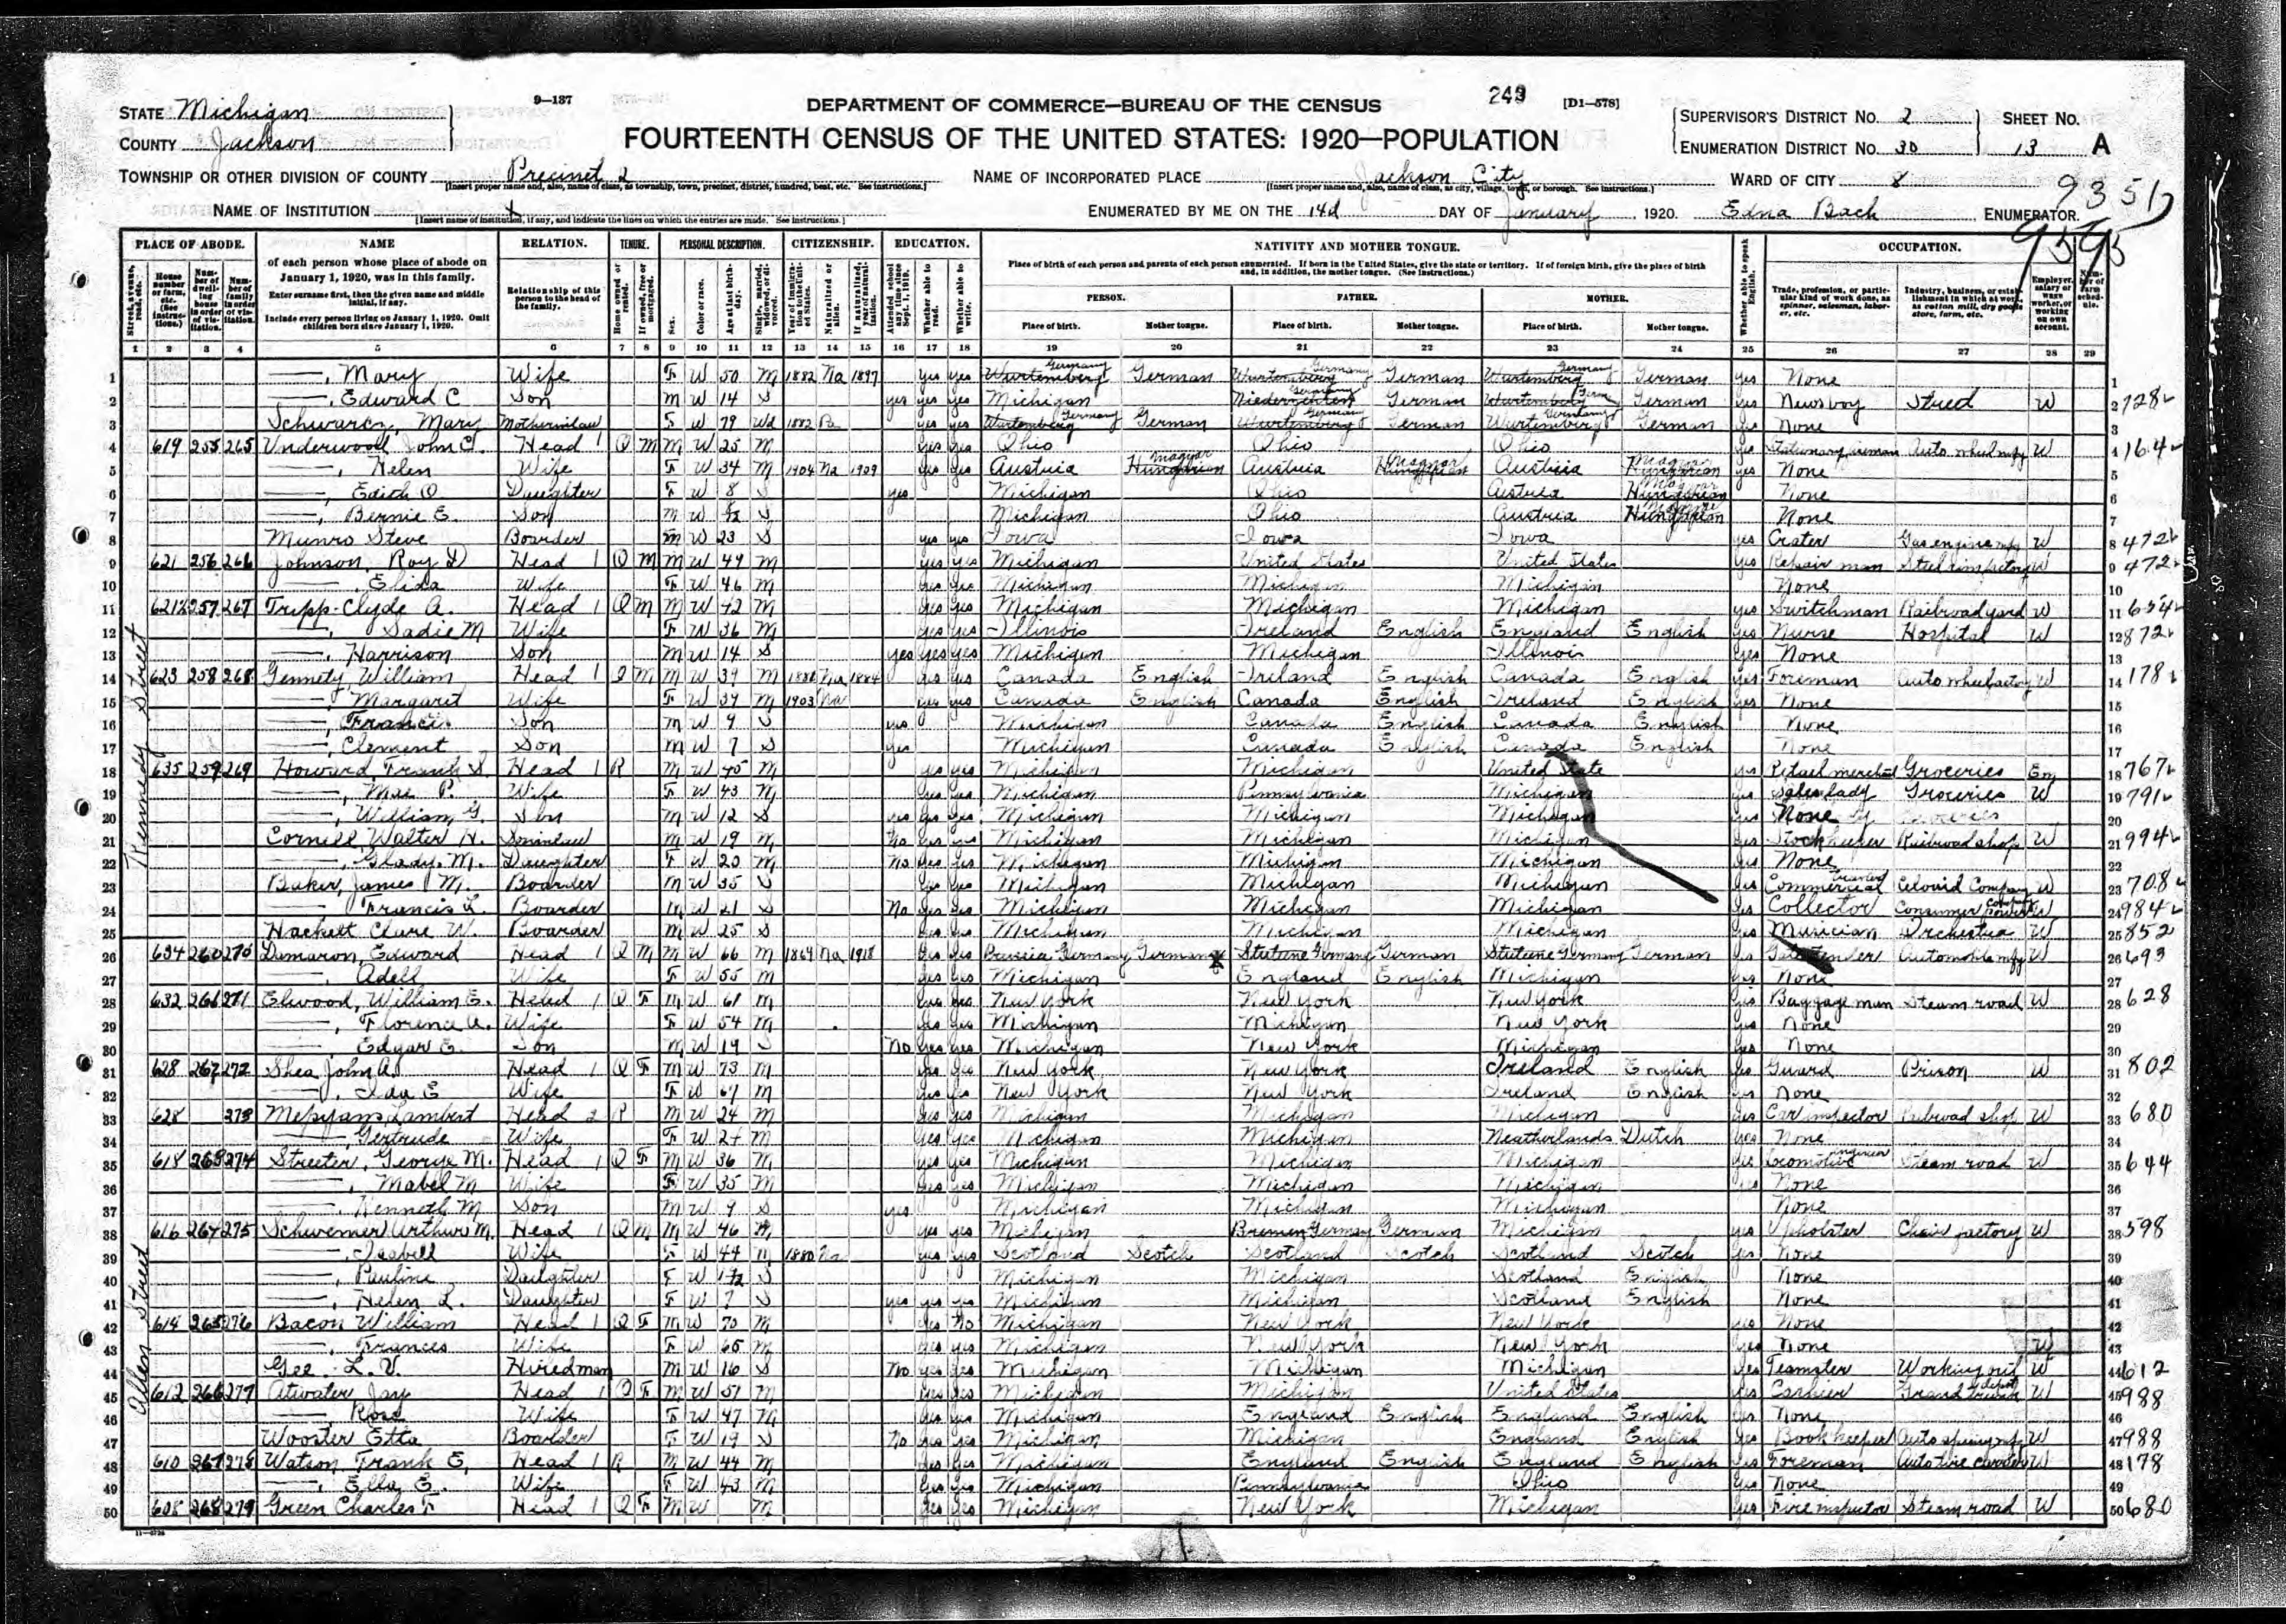 9—137
DEPARTMENT OF COMMERCE—BUREAU OF THE CENSUS
249 [D1—578]
STATE Michigan
COUNTY Jackson
FOURTEENTH CENSUS OF THE UNITED STATES: 1920—POPULATION
SUPERVISOR'S DISTRICT No. 2
ENUMERATION DISTRICT No. 30
SHEET No. 13 A
TOWNSHIP OR OTHER DIVISION OF COUNTY Precinct 2
[Insert proper name and, also, name of class, as township, town, precinct, district, hundred, beat, etc. See instructions.]
NAME OF INCORPORATED PLACE Jackson City
[Insert proper name and, also, name of class, as city, village, town, or borough. See instructions.]
WARD OF CITY 8
NAME OF INSTITUTION X
[Insert name of institution, if any, and indicate the lines on which the entries are made. See instructions.]
ENUMERATED BY ME ON THE 14d DAY OF January, 1920. Edna Bach ENUMERATOR.
9351
9595
PLACE OF ABODE. NAME RELATION. TENURE. PERSONAL DESCRIPTION. CITIZENSHIP. EDUCATION. NATIVITY AND MOTHER TONGUE. OCCUPATION.
of each person whose place of abode on January 1, 1920, was in this family.
Enter surname first, then the given name and middle initial, if any.
Include every person living on January 1, 1920. Omit children born since January 1, 1920.
Relationship of this person to the head of the family.
Place of birth of each person and parents of each person enumerated. If born in the United States, give the state or territory. If of foreign birth, give the place of birth and, in addition, the mother tongue. (See instructions.)
PERSON. FATHER. MOTHER.
Place of birth. Mother tongue. Place of birth. Mother tongue. Place of birth. Mother tongue.
1 2 3 4 5 6 7 8 9 10 11 12 13 14 15 16 17 18 19 20 21 22 23 24 25 26 27 28 29
Kennedy Street
Allen Street
1 —, Mary Wife F W 50 M 1882 Na 1897 yes yes Wurtemberg Germany German Wurtemberg Germany German Wurtemberg Germany German yes None
2 —, Edward C Son M W 14 S yes yes yes Michigan Germany German Wurtemberg German yes Newsboy Street W 728
3 Schwarz, Mary Motherinlaw W 79 Wd 1882 yes yes Wurtemberg Germany German Wurtemberg Germany German Wurtemberg Germany German yes None
4 619 255 265 Underwood John C. Head 1 O M M W 25 M yes yes Ohio Ohio Ohio yes Stationary fireman Auto wheel mfg W 164
5 —, Helen Wife F W 34 M 1904 Na 1909 yes yes Austria Hungarian Magyar Austria Hungarian Magyar Austria Hungarian Magyar yes None
6 —, Edith O Daughter F W 8 S yes Michigan Ohio Austria Hungarian Magyar None
7 —, Bernie E. Son M W S Michigan Ohio Austria Hungarian Magyar None
8 Munro Steve Boarder M W 23 S yes yes Iowa Iowa Iowa yes Crater Gas engine mfg W 472
9 621 256 266 Johnson, Roy D Head 1 O M M W 49 M yes yes Michigan United States United States yes Repair man W 472
10 —, Elida Wife F W 46 M yes yes Michigan Michigan Michigan None
11 621½ 257 267 Tripp Clyde A. Head 1 O M M W 42 M yes yes Michigan Michigan Michigan yes Switchman Railroad yard W 654
12 —, Sadie M Wife F W 36 M yes yes Illinois Ireland English England English yes Nurse Hospital W 872
13 —, Harrison Son M W 14 S yes yes yes Michigan Michigan Illinois yes None
14 623 258 268 Gennety William Head 1 O M M W 39 M Na 1884 yes yes Canada English Ireland English Canada English yes Foreman Auto wheel factory W 178
15 —, Margaret Wife F W 39 M 1903 Na yes yes Canada English Canada English Ireland English yes None
16 —, Francis Son M W 9 S yes Michigan Canada English Canada English None
17 —, Clement Son M W 7 S yes Michigan Canada English Canada English None
18 635 259 269 Howard, Frank S. Head 1 R M W 45 M yes yes Michigan Michigan United State yes Retail merchant Groceries Em 767
19 —, Mae P. Wife F W 43 M yes yes Michigan Pennsylvania Michigan yes Sales lady Groceries W 791
20 —, William G. Son M W 12 S yes yes yes Michigan Michigan Michigan yes None
21 Cornell, Walter H. Soninlaw M W 19 M No yes yes Michigan Michigan Michigan yes Stock keeper Railroad shop W 994
22 —, Glady. M. Daughter F W 20 M No yes yes Michigan Michigan Michigan yes None
23 Baker, James M. Boarder M W 35 S yes yes Michigan Michigan Michigan yes Commercial traveler Company W 708
24 — Francis L. Boarder M W 21 S No yes yes Michigan Michigan Michigan yes Collector Consumer power company W 984
25 Hackett Clare W. Boarder M W 25 S yes yes Michigan Michigan Michigan yes Musician Orchestra W 852
26 634 260 270 Damaron, Edward Head 1 O M M W 66 M 1864 Na 1918 yes yes Prussia Germany German Germany German Germany German yes Automobile mfg W 693
27 —, Adell Wife F W 55 M yes yes Michigan England English Michigan yes None
28 632 261 271 Elwood, William E. Head 1 O F M W 61 M yes yes New York New York New York yes Baggage man Steam road W 628
29 —, Florence A. Wife F W 54 M yes yes Michigan Michigan New York yes None
30 —, Edgar E. Son M W 19 S No yes yes Michigan New York Michigan yes None
31 628 262 272 Shea John A. Head 1 O F M W 73 M yes yes New York New York Ireland English yes Guard Prison W 802
32 —, Ida E Wife F W 67 M yes yes New York New York Ireland English yes None
33 628 273 Lambert Head 2 R M W 24 M yes yes Michigan Michigan Michigan yes Car inspector Railroad shop W 680
34 —, Gertrude Wife F W 24 M yes yes Michigan Michigan Neatherlands Dutch yes None
35 618 263 274 Streeter, George M. Head 1 O F M W 36 M yes yes Michigan Michigan Michigan yes Locomotive engineer Steam road W 644
36 —, Mabel M Wife F W 35 M yes yes Michigan Michigan Michigan yes None
37 —, Kenneth M Son M W 9 S yes Michigan Michigan Michigan None
38 616 264 275 Schwemer Arthur M. Head 1 O M M W 46 M yes yes Michigan Bremen Germany German Michigan yes Upholster Chair factory W 598
39 —, Isabell Wife F W 44 M 1880 Na yes yes Scotland Scotch Scotland Scotch Scotland Scotch yes None
40 —, Pauline Daughter F W S Michigan Michigan Scotland English None
41 —, Helen L. Daughter F W 7 S yes yes yes Michigan Michigan Scotland English None
42 614 265 276 Bacon William Head 1 O F M W 70 M yes No Michigan New York New York yes None
43 —, Frances Wife F W 65 M yes yes Michigan New York New York yes None W
44 Gee L. V. Hiredman M W 16 S No yes yes Michigan Michigan Michigan yes Teamster Working out W 612
45 612 266 277 Atwater Jay Head 1 O F M W 51 M yes yes Michigan Michigan United States yes Grand Trunk W 988
46 —, Rose Wife F W 47 M yes yes Michigan England English England English yes None
47 Wooster Etta Boarder F W 19 S No yes yes Michigan Michigan England English yes Bookkeeper Auto spring mfg W 988
48 610 267 278 Watson Frank E. Head 1 R M W 44 M yes yes Michigan England English England English yes Foreman W 178
49 —, Ella E. Wife F W 43 M yes yes Michigan Pennsylvania Ohio yes None
50 608 268 279 Green Charles F Head 1 O F M W M yes yes Michigan New York Michigan yes Fire inspector Steam road W 680